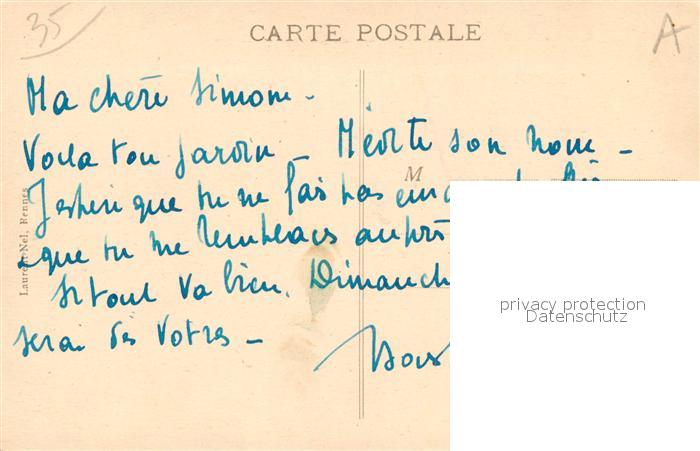 35
CARTE POSTALE
A
Ma chère Simone -
Voila ton jardin - Mérite son nom -
M
J'espère que tu ne fais pas
que tu me remplaces auprè
Si tout va bien. Dimanch
serai des votres -
Laurent-Nel, Rennes
privacy protection
Datenschutz